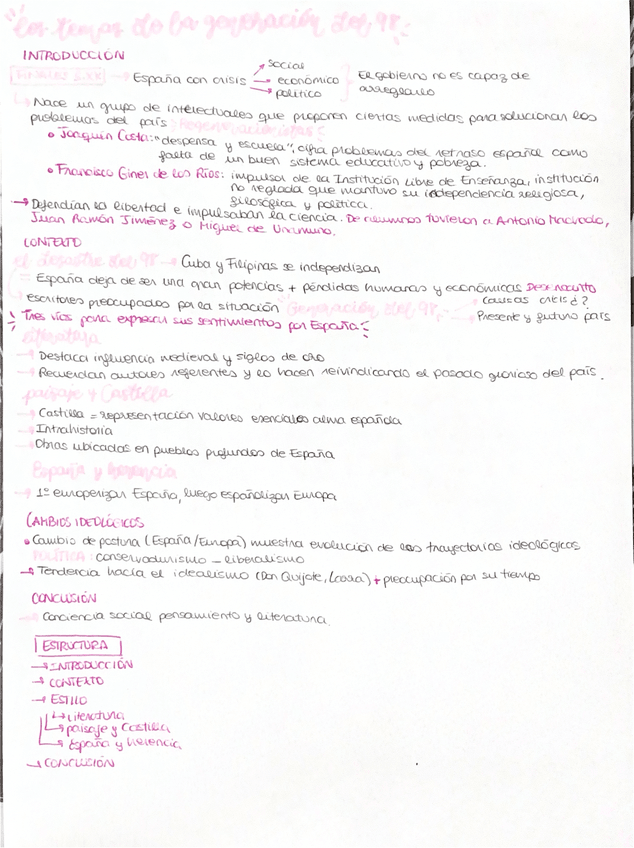 Los temas de la generación del 98:
INTRODUCCIÓN
FINALES S.XIX → España con crisis → social
→ económico
→ político
El gobierno no es capaz de arreglarlo
Nace un grupo de intelectuales que proponen ciertas medidas para solucionar los
problemas del país: Regeneracionistas:
• Joaquín Costa: "despensa y escuela", cifra problemas del retraso español como
falta de un buen sistema educativo y pobreza.
• Francisco Giner de los Ríos: impulsor de la Institución Libre de Enseñanza, institución
no reglada que mantuvo su independencia religiosa,
filosófica y política.
→ Defendían la libertad e impulsaban la ciencia. De alumnos tuvieron a Antonio Machado,
Juan Ramón Jiménez o Miguel de Unamuno.
CONTEXTO
el desastre del 98 → Cuba y Filipinas se independizan
España deja de ser una gran potencias + pérdidas humanas y económicas DESENCANTO
Escritores preocupados por la situación Generación del 98 Causas crisis ¿?
Presente y futuro país
Tres vías para expresar sus sentimientos por España:
literatura
→ Destaca influencia medieval y siglos de oro
→ Recuerdan autores referentes y lo hacen reivindicando el pasado glorioso del país.
paisaje y Castilla
→ Castilla = representación valores esenciales alma española
→ Intrahistoria
→ Obras ubicadas en pueblos profundos de España
España y herencia
→ 1º europerizar España, luego españolizar Europa
CAMBIOS IDEOLÓGICOS
• Cambio de postura (España/Europa) muestra evolución de las trayectorias ideológicas
POLÍTICA: conservadurismo - liberalismo
→ Tendencia hacía el idealismo (Don Quijote, Larra) + preocupación por su tiempo
CONCLUSIÓN
→ Conciencia social pensamiento y literatura.
ESTRUCTURA
→ INTRODUCCIÓN
→ CONTEXTO
→ ESTILO
→ Literatura
→ paisaje y Castilla
→ España y herencia
→ CONCLUSIÓN